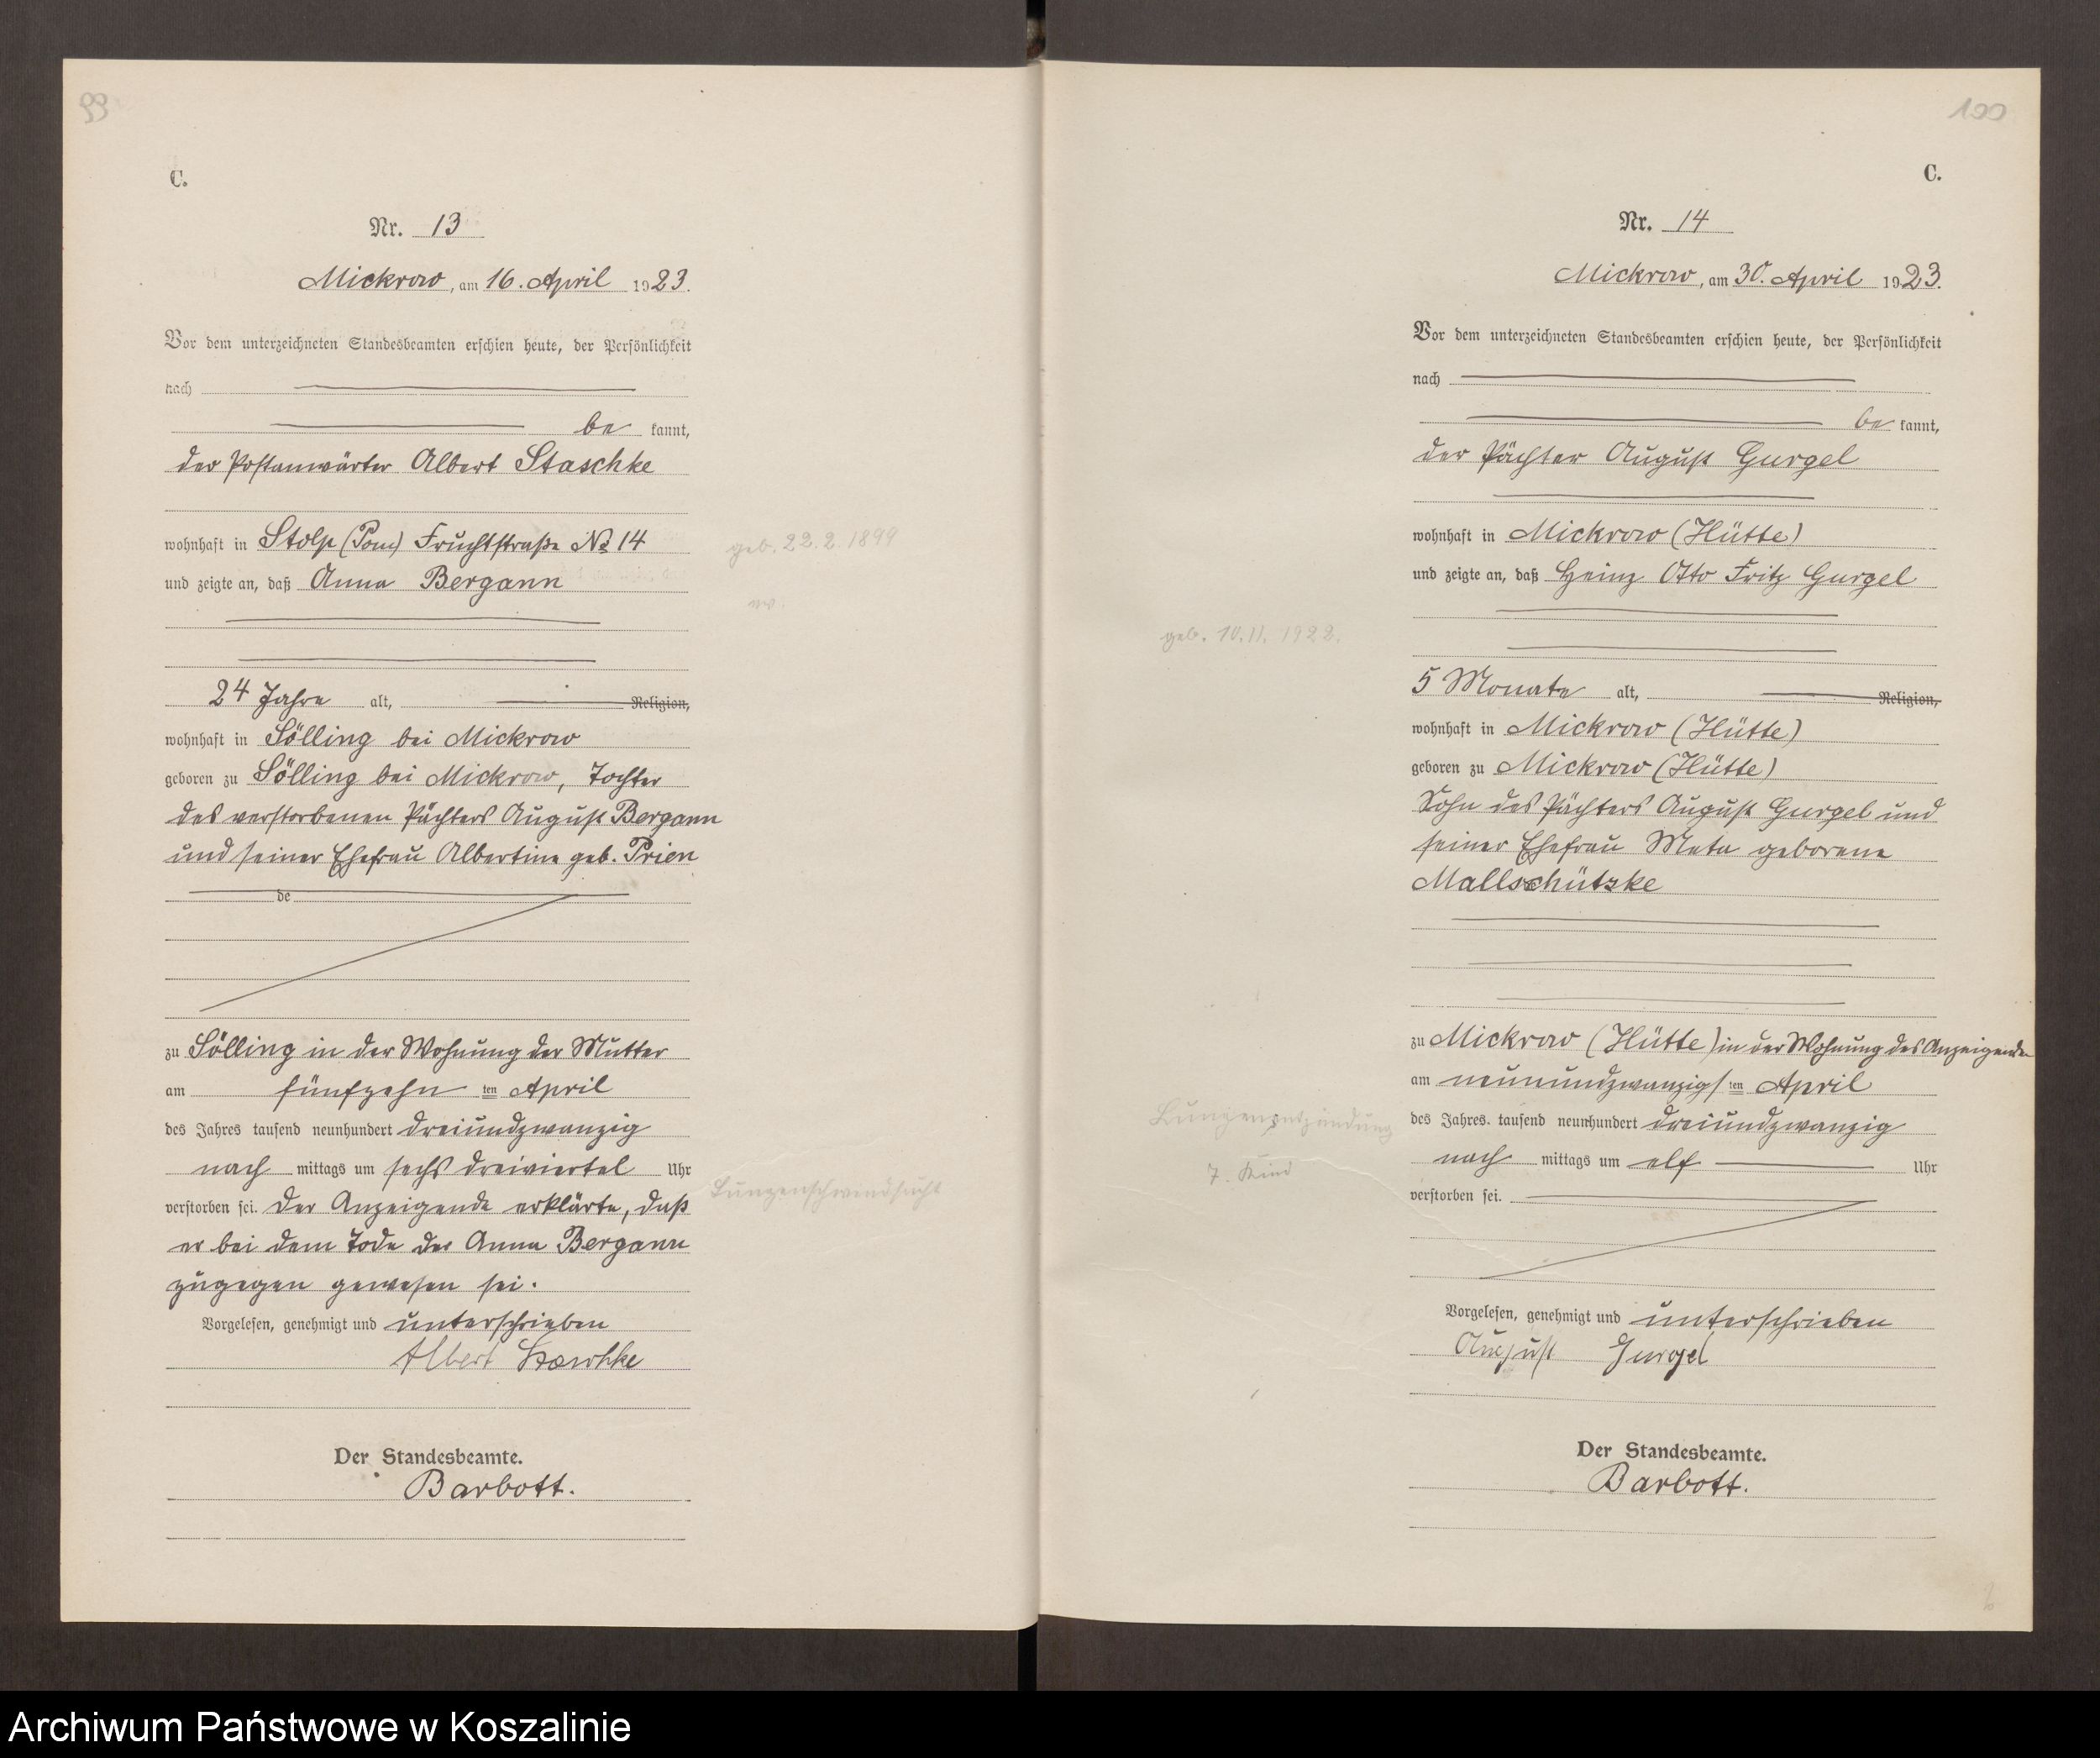 99
C.
Nr. 13
Mickrow, am 16. April 1923.
Vor dem unterzeichneten Standesbeamten erschien heute, der Persönlichkeit
nach
be kannt,
der Postanwärter Albert Staschke
wohnhaft in Stolp (Pom) Fruchtstraße № 14
geb. 22. 2. 1899
und zeigte an, daß Anna Bergann
24 Jahre alt, Religion,
wohnhaft in Sölling bei Mickrow
geboren zu Sölling bei Mickrow, Tochter
des verstorbenen Pächters August Bergann
und seiner Ehefrau Albertine geb. Prien
de
zu Sölling in der Wohnung der Mutter
am fünfzehn ten April
des Jahres tausend neunhundert dreiundzwanzig
nach mittags um sechs dreiviertel Uhr
Lungenschwindsucht
verstorben sei. Der Anzeigende erklärte, daß
er bei dem Tode der Anna Bergann
zugegen gewesen sei.
Vorgelesen, genehmigt und unterschrieben
Albert Staschke
Der Standesbeamte.
Barbott.
100
C.
Nr. 14
Mickrow, am 30. April 1923.
Vor dem unterzeichneten Standesbeamten erschien heute, der Persönlichkeit
nach
be kannt,
der Pächter August Gurgel
wohnhaft in Mickrow (Hütte)
und zeigte an, daß Heinz Otto Fritz Gurgel
geb. 10. 11. 1922.
5 Monate alt, Religion,
wohnhaft in Mickrow (Hütte)
geboren zu Mickrow (Hütte)
Sohn des Pächters August Gurgel und
seiner Ehefrau Meta geborene
Mallschützke
zu Mickrow (Hütte) in der Wohnung des Anzeigenden
am neunundzwanzigsten April
Lungenentzündung
des Jahres tausend neunhundert dreiundzwanzig
nach mittags um elf Uhr
7. Kind
verstorben sei.
Vorgelesen, genehmigt und unterschrieben
August Gurgel
Der Standesbeamte.
Barbott.
Archiwum Państwowe w Koszalinie